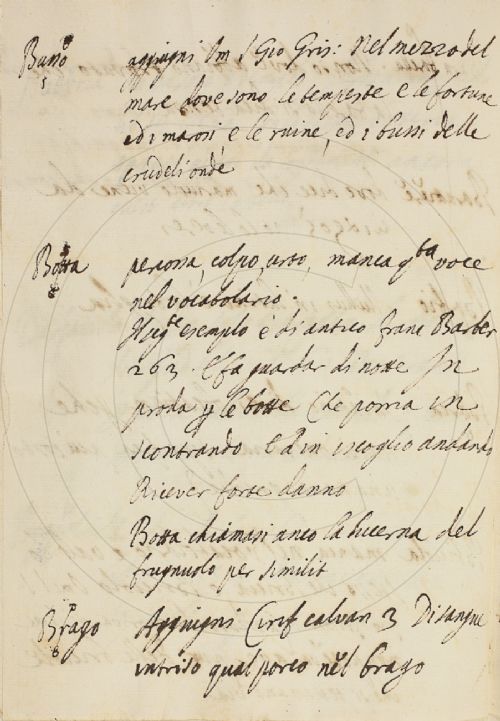 Busso aggiugni Om S Gio Gris: Nel mezzo del
5 mare dove sono le tempeste e le fortune
ed i marosi e le ruine, ed i bussi delle
crudeli onde
Botta percossa, colpo, urto, manca qta voce
8 nel vocabolario.
Il segte esemplo è di antico Franc Barber
263. E fa guardar di notte In
proda p le botte Che porria in
scontrando E d in iscoglio andando
Ricever forte danno
Botta chiamasi anco la lucerna del
frugnuolo per similit
Brago Aggiugni Cirif calvan 3 Di sangue
8 intriso qual porco nel brago